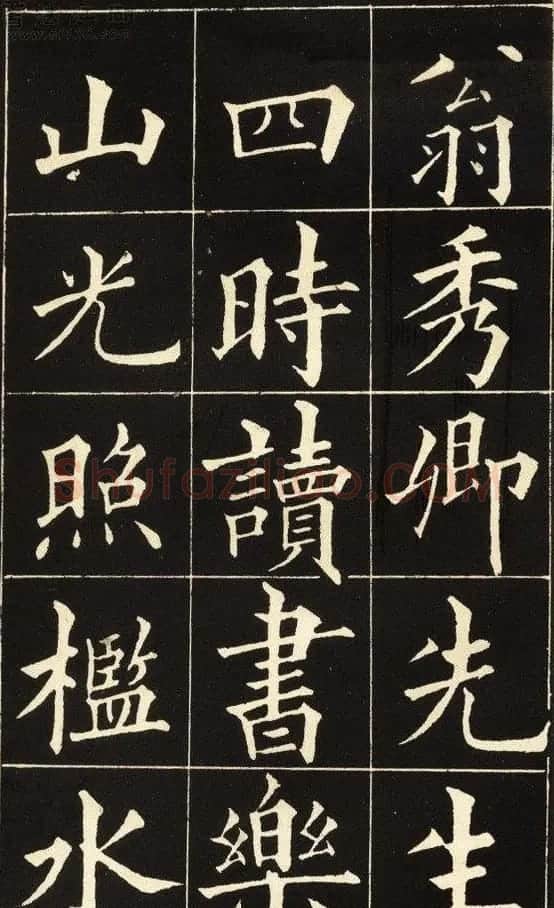 翁秀卿先生
四時讀書樂
山光照檻水
Shufaziliao.COM